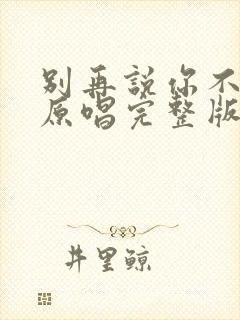 别再說你不
原唱完整版
井里鲸